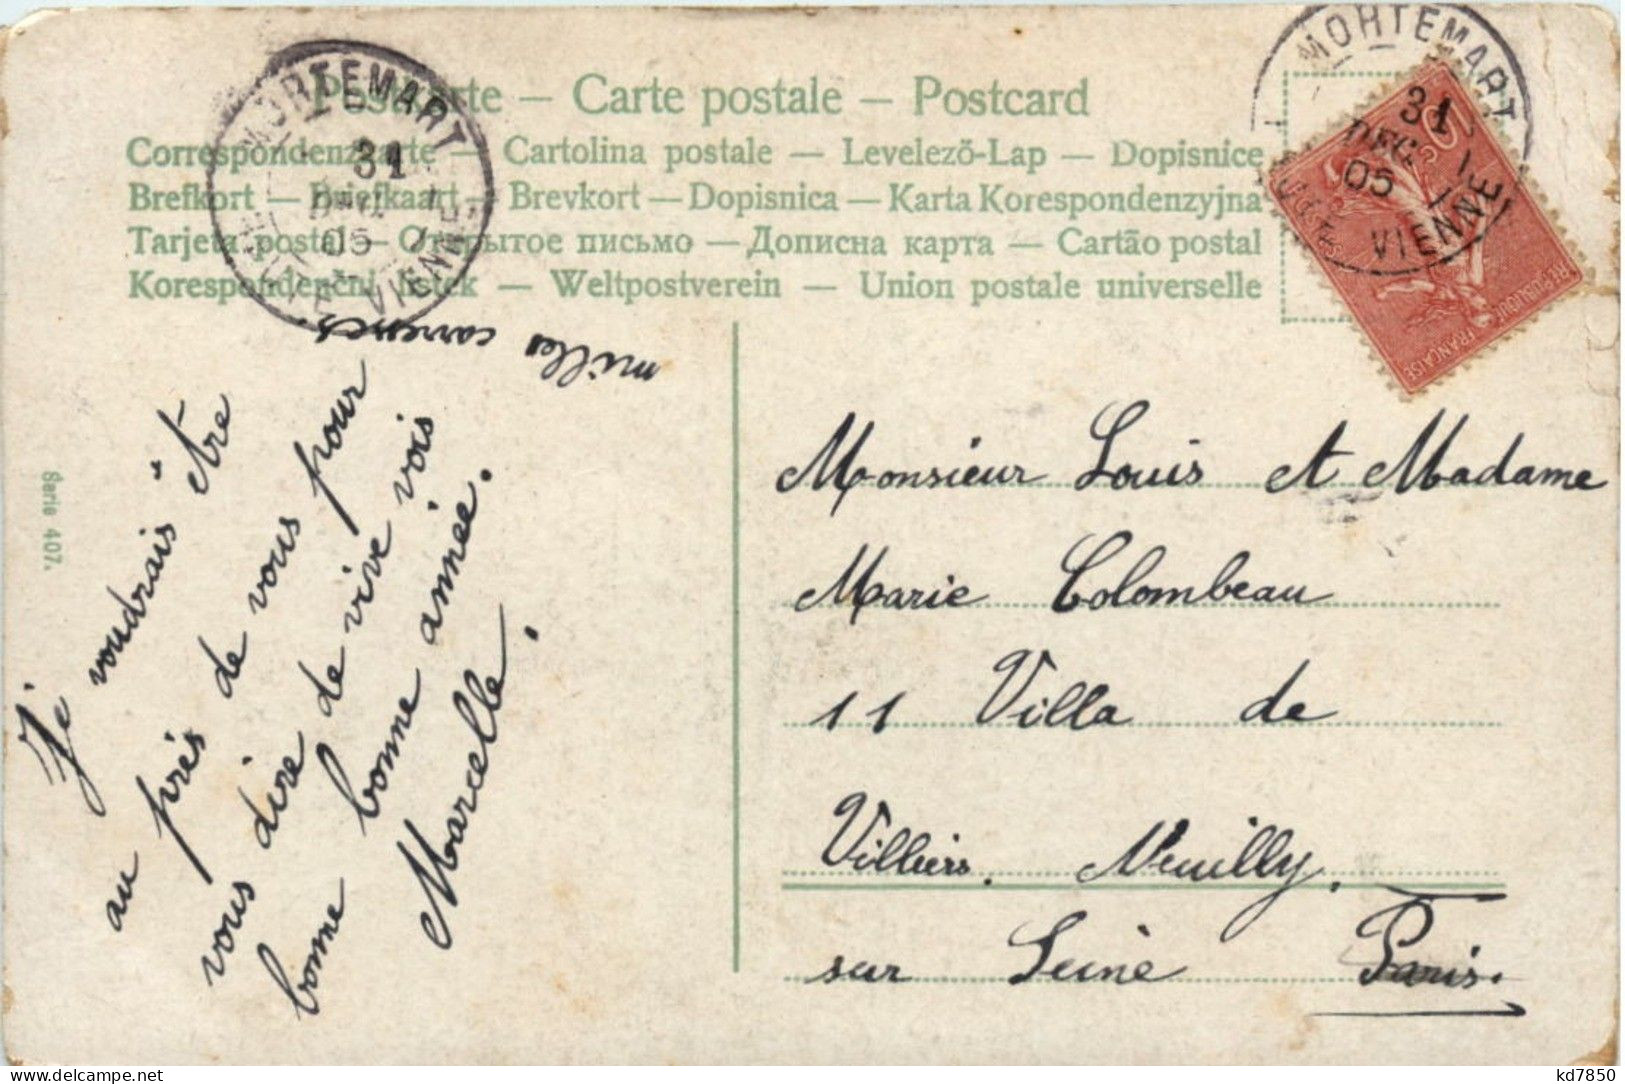 Postkarte — Carte postale — Postcard
Correspondenzkarte — Cartolina postale — Levelező-Lap — Dopisnice
Brefkort — Briefkaart — Brevkort — Dopisnica — Karta Korespondenzyjna
Tarjeta postal — Открытое письмо — Дописна карта — Cartão postal
Korespondenční lístek — Weltpostverein — Union postale universelle
MORTEMART
31
DEC
05
VIENNE
MORTEMART
31
DEC
05
VIENNE
10
REPUBLIQUE FRANÇAISE
Serie 407.
Je voudrais être
au près de vous pour
vous dire de vive vois
bonne bonne année.
Marcelle.
milles caresses.
Monsieur Louis et Madame
Marie Colombeau
11 Villa de
Villiers. Neuilly.
sur Seine Paris.
delcampe.net
kd7850